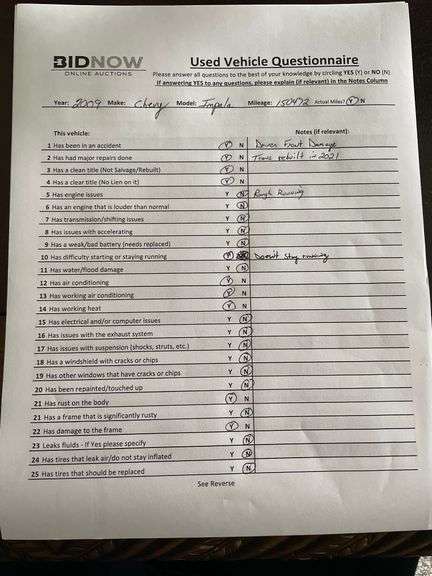 BIDNOW
ONLINE AUCTIONS
Used Vehicle Questionnaire
Please answer all questions to the best of your knowledge by circling YES (Y) or NO (N)
If answering YES to any questions, please explain (if relevant) in the Notes Column
Year: 2009 Make: Chevy Model: Impala Mileage: 150472 Actual Miles? Y N
This vehicle: Notes (if relevant):
1 Has been in an accident Y N Driver Front Damage
2 Has had major repairs done Y N Trans rebuilt in 2021
3 Has a clean title (Not Salvage/Rebuilt) Y N
4 Has a clear title (No Lien on it) Y N
5 Has engine issues Y N Rough Running
6 Has an engine that is louder than normal Y N
7 Has transmission/shifting issues Y N
8 Has issues with accelerating Y N
9 Has a weak/bad battery (needs replaced) Y N
10 Has difficulty starting or staying running Y Doesn't stay running
11 Has water/flood damage Y N
12 Has air conditioning Y N
13 Has working air conditioning Y N
14 Has working heat Y N
15 Has electrical and/or computer issues Y N
16 Has issues with the exhaust system Y N
17 Has issues with suspension (shocks, struts, etc.) Y N
18 Has a windshield with cracks or chips Y N
19 Has other windows that have cracks or chips Y N
20 Has been repainted/touched up Y N
21 Has rust on the body Y N
21 Has a frame that is significantly rusty Y N
22 Has damage to the frame Y N
23 Leaks fluids - If Yes please specify Y N
24 Has tires that leak air/do not stay inflated Y N
25 Has tires that should be replaced Y N
See Reverse